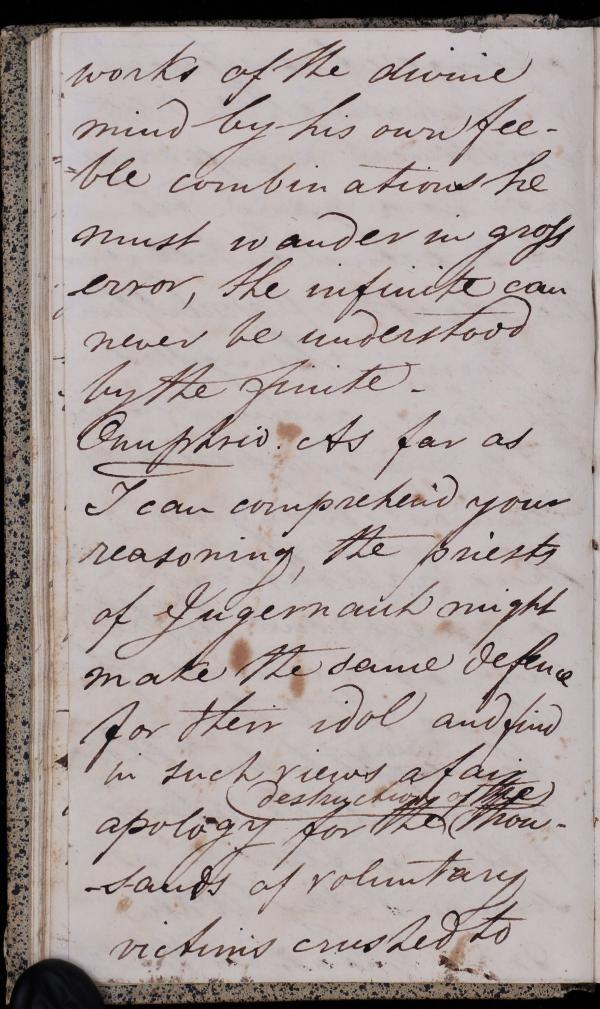 works of the divine
mind by his own fee-
=ble combinations he
must wander in gross
error, the infinite can
never be understood
by the finite -
Onuphrio. As far as
I can comprehend your
reasoning, the priests
of Jugernauth might
make the same defence
for their idol and find
in such views a fair
destruction of the
apology for the thou-
-sands of voluntary
victims crushed to